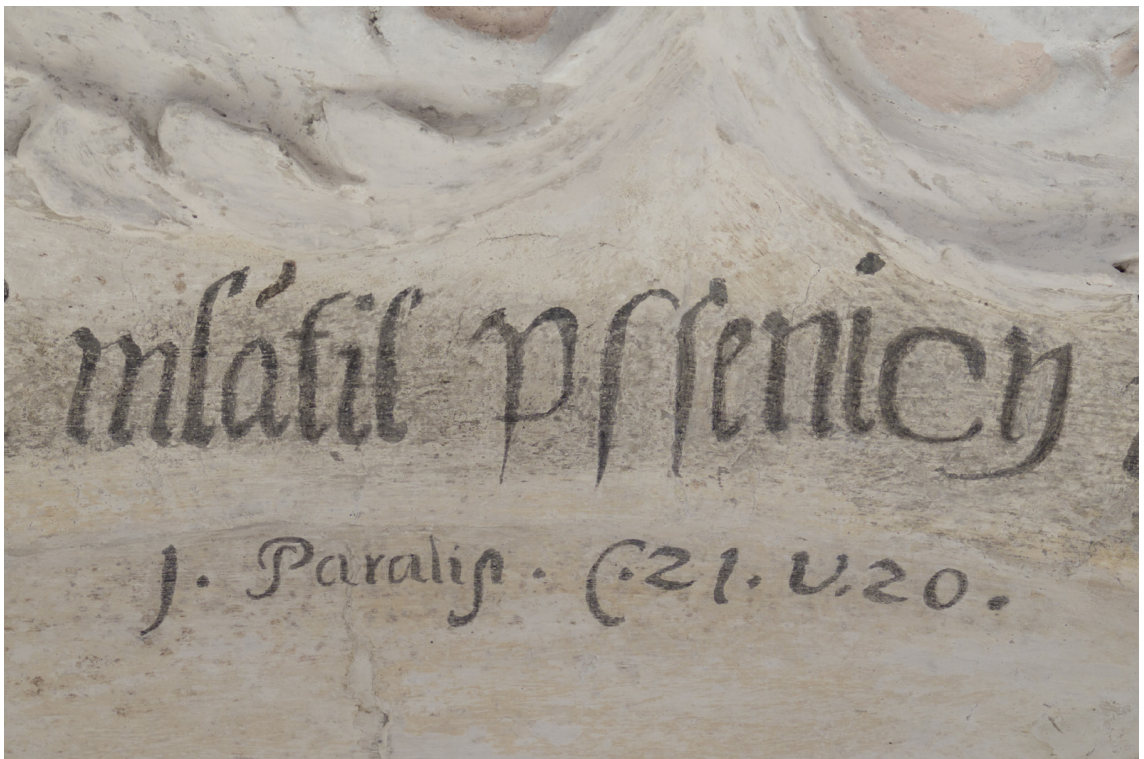 mlátil pſſenicy
j. Paralip. C.21.V.20.